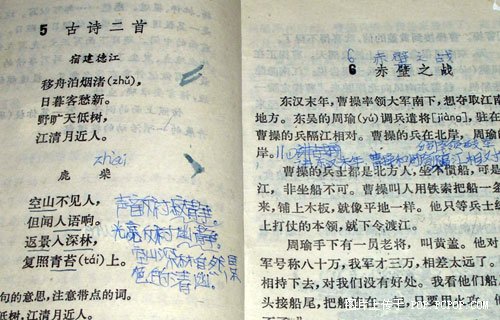 5 古诗二首
宿建德江
移舟泊烟渚(zhǔ),
日暮客愁新。
野旷天低树,
江清月近人。
zhài
鹿柴
空山不见人,
但闻人语响。
返景入深林,
复照青苔(tái)上。
声音反衬寂静
光亮反衬幽静。
空山深林自然景
色的清幽。
句的意思,注意带点的词。
低树,江清月近人。
6 赤壁之战
6 赤壁之战
东汉末年,曹操率领大军南下,想夺取江南
地方。东吴的周瑜(yú)调兵遣将[jiàng],驻在
曹操的兵隔江相对。曹操的兵在北岸,周瑜
岸。
曹操的兵士都是北方人,坐不惯船,可是
江,非坐船不可。曹操叫人用铁索把船一条
来,铺上木板,就像平地一样。他只等兵士练
上打仗的本领,就下令渡江。
周瑜手下有一员老将,叫黄盖。他对
军号称八十万,我军才三万,相差太远了。
相持下去,对我们没有好处。我看他们船
头接船尾,把船连在一起,只要用火攻,他